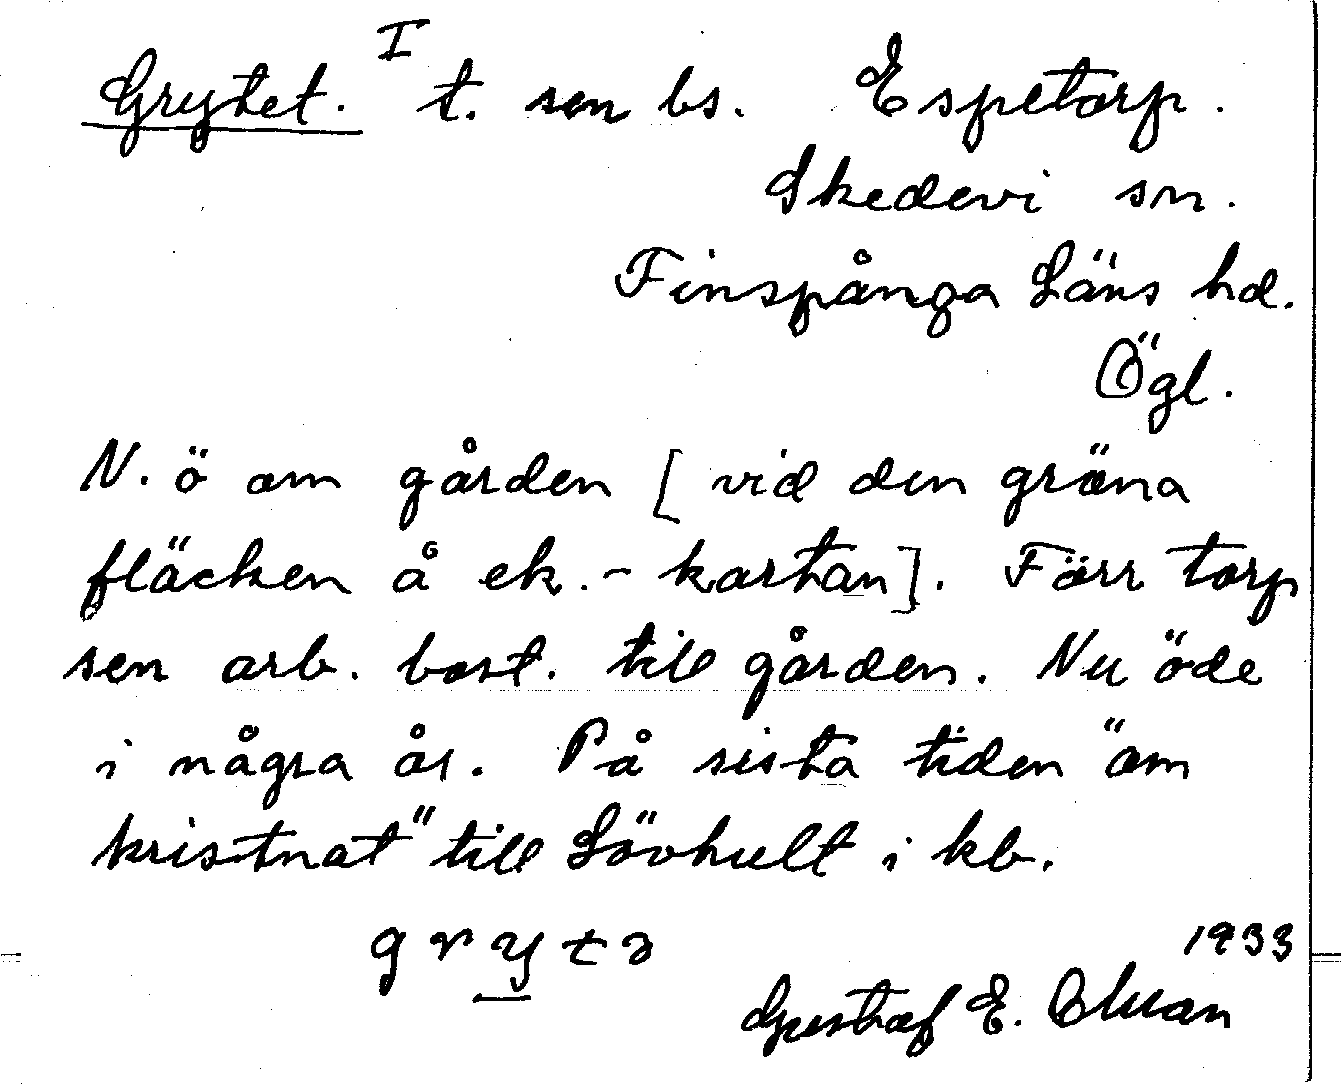 Grytet. I t. sen bs. Espetorp.
Skedevi sn.
Finspånga Läns hd.
Ögl.
N. ö om gården [vid den gröna
fläcken å ek.-kartan]. Förr torp
sen arb. bost. till gården. Nu öde
i några år. På sista tiden "om
kristnat" till Lövhult i kb.
grytə
1933
Gustaf E.